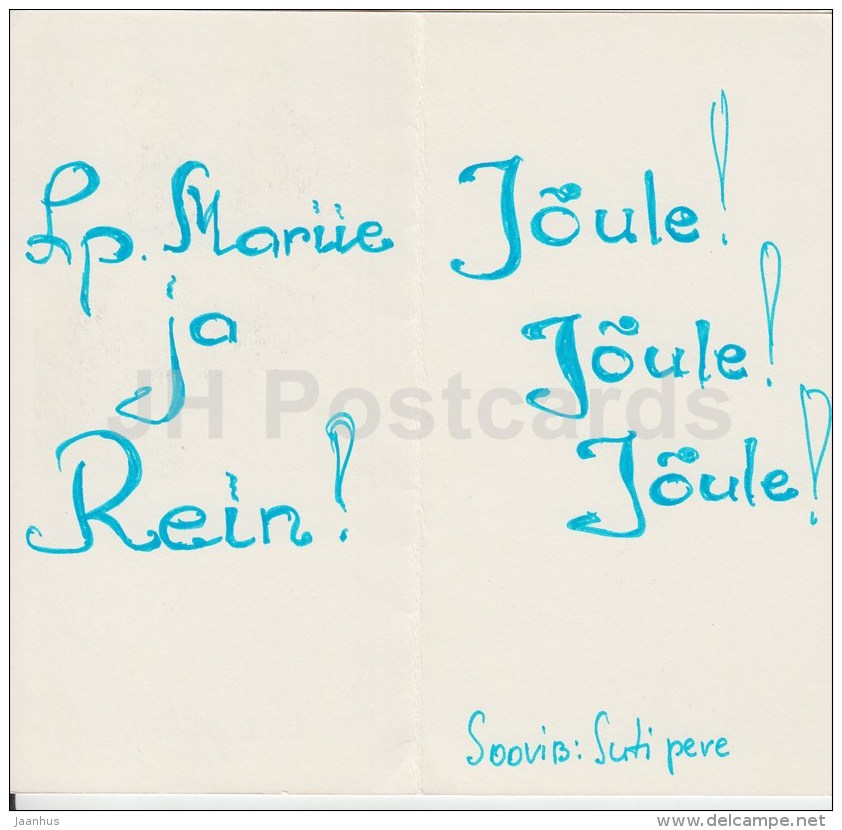 Lp. Mariie
ja
Rein!
Jõule!
Jõule!
Jõule!
Soovib: Suti pere
JH Postcards
jaanhus
www.delcampe.net